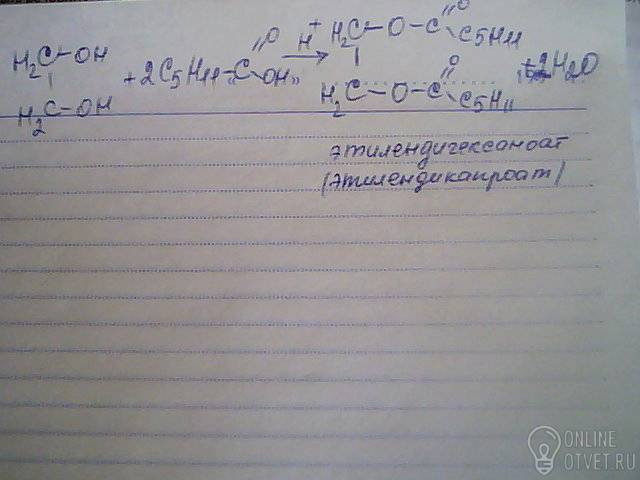 O
H2C-OH + 2C5H11-C-OH H+ → H2C-O-C C5H11
O
H2C-OH H2C-O-C C5H11 + 2H2O
этилендигексаноат
(этилендикапроат)
ONLINE
OTVET.RU